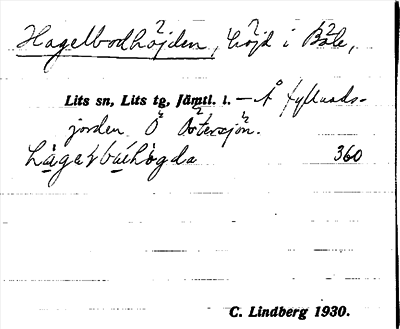 Hagelbodhöjden, höjd i Båle,
Lits sn, Lits tg, Jämtl. l. — Å
jorden Ö Östersjön.
360
C. Lindberg 1930.